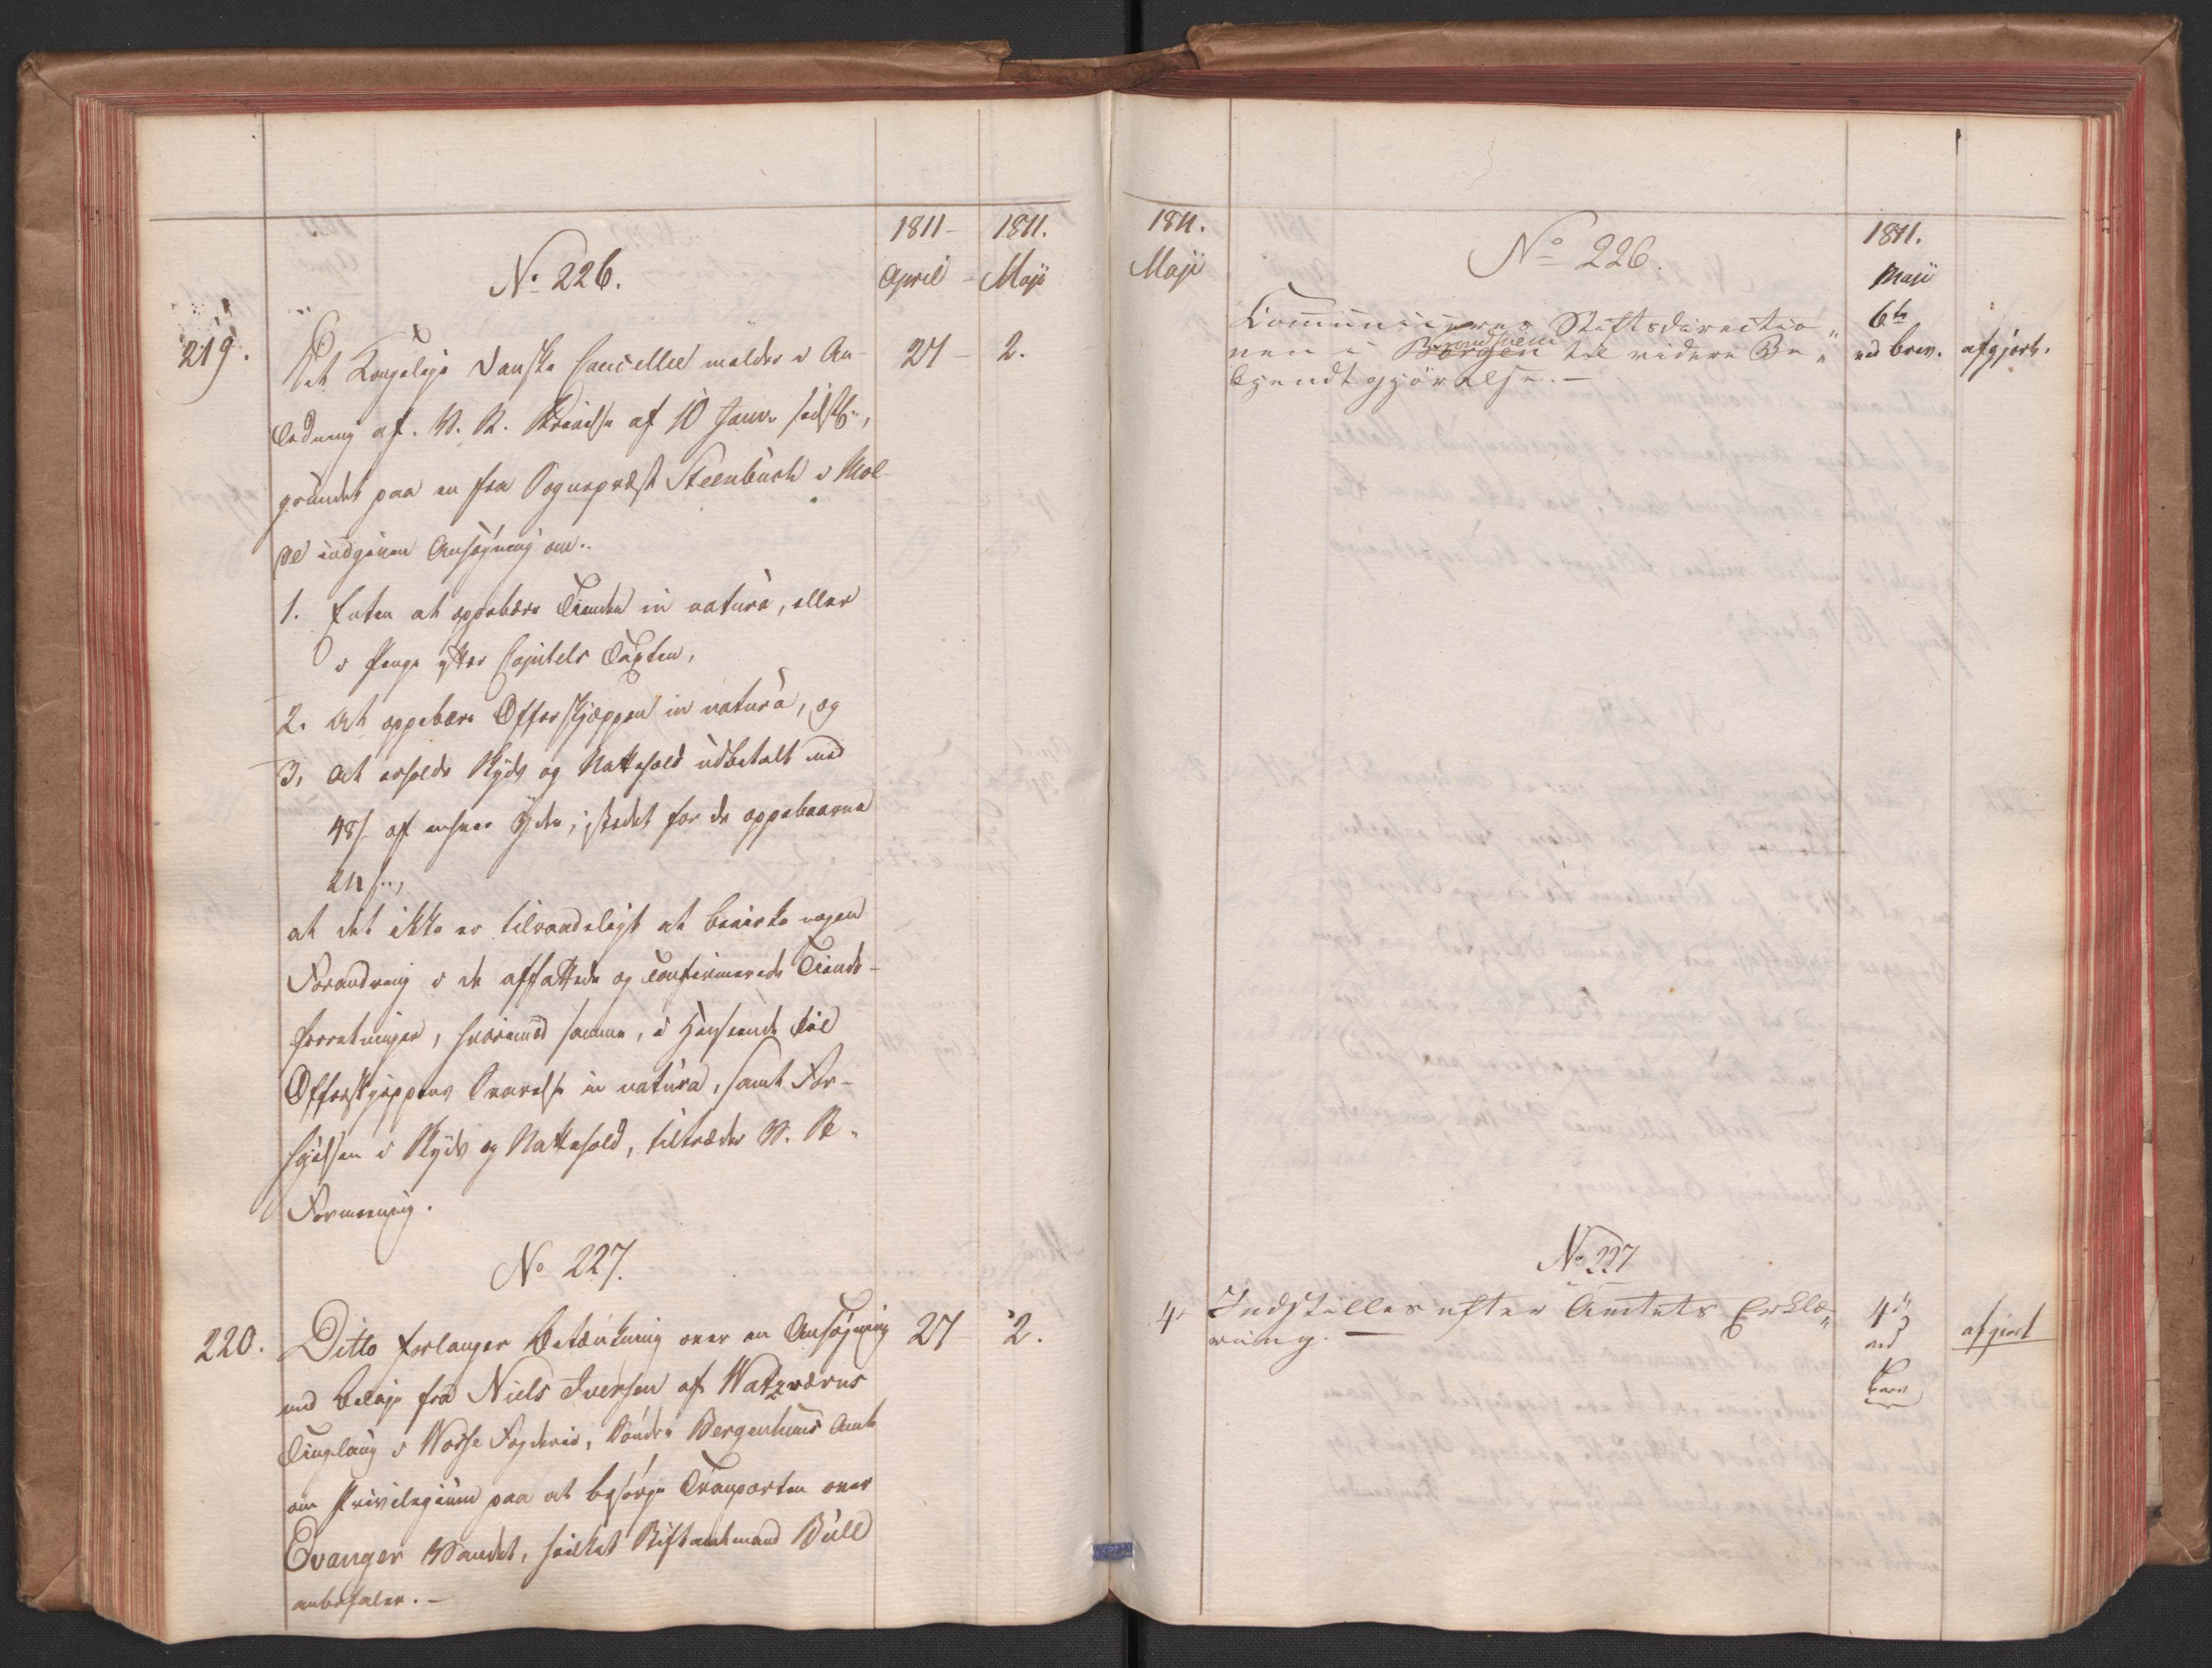 1811 - 1811.
April - Maji
No 226.
219.
Det Kongelige Danske Cancellie melder i An-
27 - 2.
ledning af V. R. Skrivelse af 10 Janv. sidstl.,
grundet paa en fra Sognepræst Steenbuch i Mol-
de indgiven Ansøgning om..
1. Enten at oppebære Tienden in natura, eller
i Penge efter Capitels Taxten,
2. At oppebære Offerskjæppen in natura, og
3, At erholde Skyds og Nattehold udbetalt med
48 s. af enhver Yder, istedet for de oppebaarne
24 s..,
at det ikke er tilraadeligt at bevirke nogen
Forandring i de affattede og confirmerede Tiende-
forretninger, hvorimod samme, i Henseende til
Offerskjeppens Svarelse in natura, samt For-
høielsen i Skyds og Nattehold, tiltræder V. R.
Formening.
No 227.
220. Ditto forlanger Betænkning over en Ansøgning 27 - 2.
med Bilage fra Niels Iversen af Watzværns
Tinglaug i Vosse Fogderie, Søndre Bergenhuus Amt
om Privilegium paa at besørge Transporten over
Evanger Vandet, hvilket Stiftamtmand Bull
anbefaler. -
1811.
Maji
No 226.
1811.
Maji
Communiceres Stiftsdirectio
6te
Trondhiem
nen i Bergen til videre Be
ved brev. afgjort.
kjendtgjörelse. -
No 227
4. Indstilles efter Amtets Erklæ- 4de
ring. -
ved
Brev
afgiort